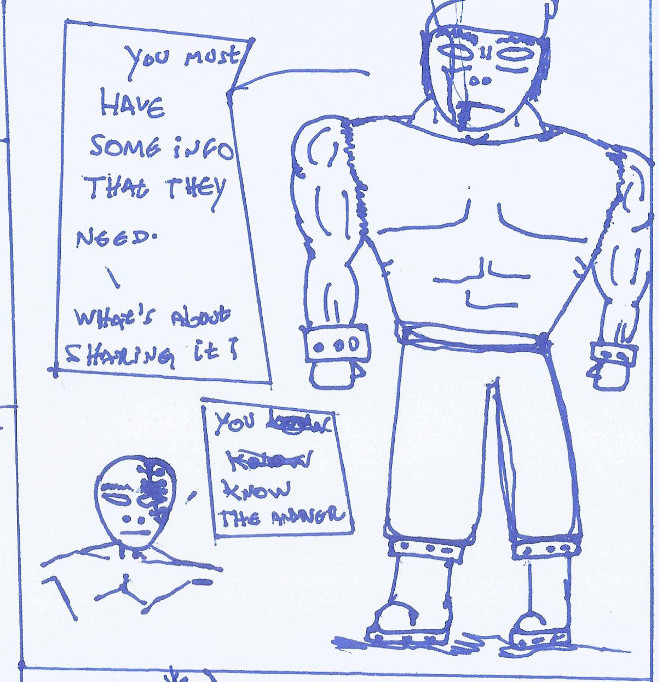 YOU MUST
HAVE
SOME INFO
THAT THEY
NEED.
WHAT'S ABOUT
SHARING IT?
YOU
KNOW
THE ANSWER